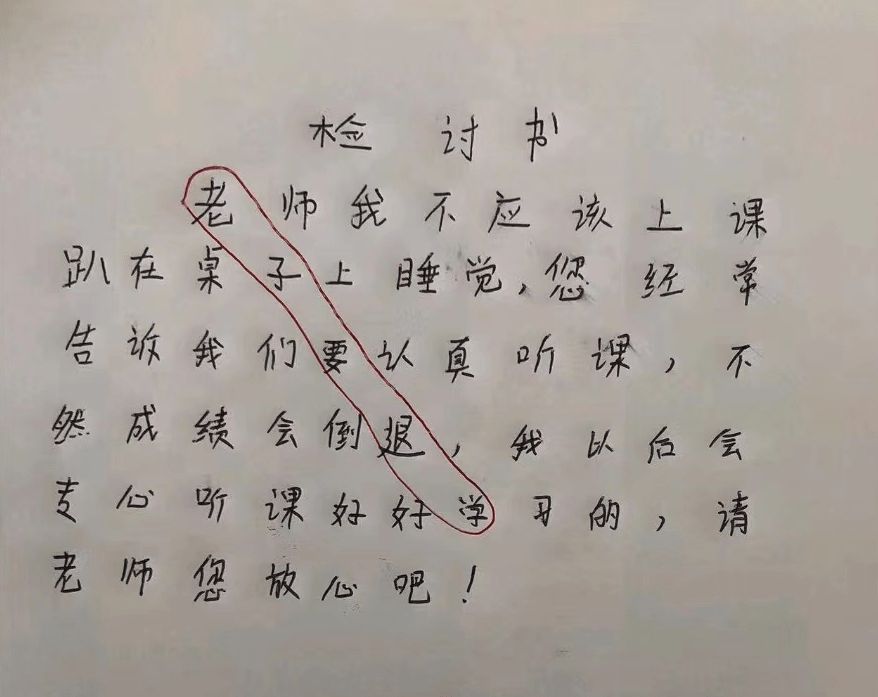 检讨书
老师我不应该上课
趴在桌子上睡觉,您经常
告诉我们要认真听课,不
然成绩会倒退,我以后会
专心听课好好学习的,请
老师您放心吧!